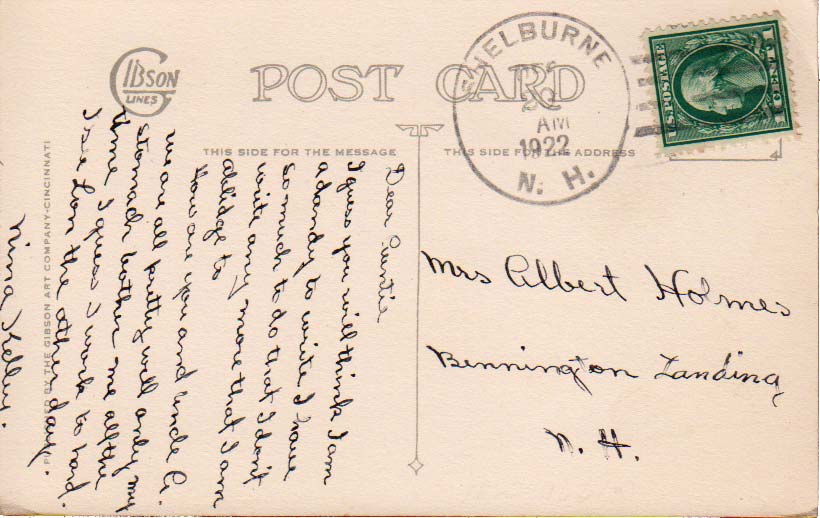 GIBSON
LINES
POST CARD
THIS SIDE FOR THE MESSAGE
THIS SIDE FOR THE ADDRESS
SHELBURNE
AM
1922
N. H.
U.S. POSTAGE
1 CENT 1
BY THE GIBSON ART COMPANY-CINCINNATI
Dear Auntie
I guess you will think I am
a dandy to write I have
so much to do that I don't
write any more that I am
ablidge to
How are you and Uncle A.
we are all pretty well only my
stomach bother me all the
time I guess I work to hard.
I see Lon the other day.
Nina Kelley.
Mrs Albert Holmes
Bennington Landing
N. H.